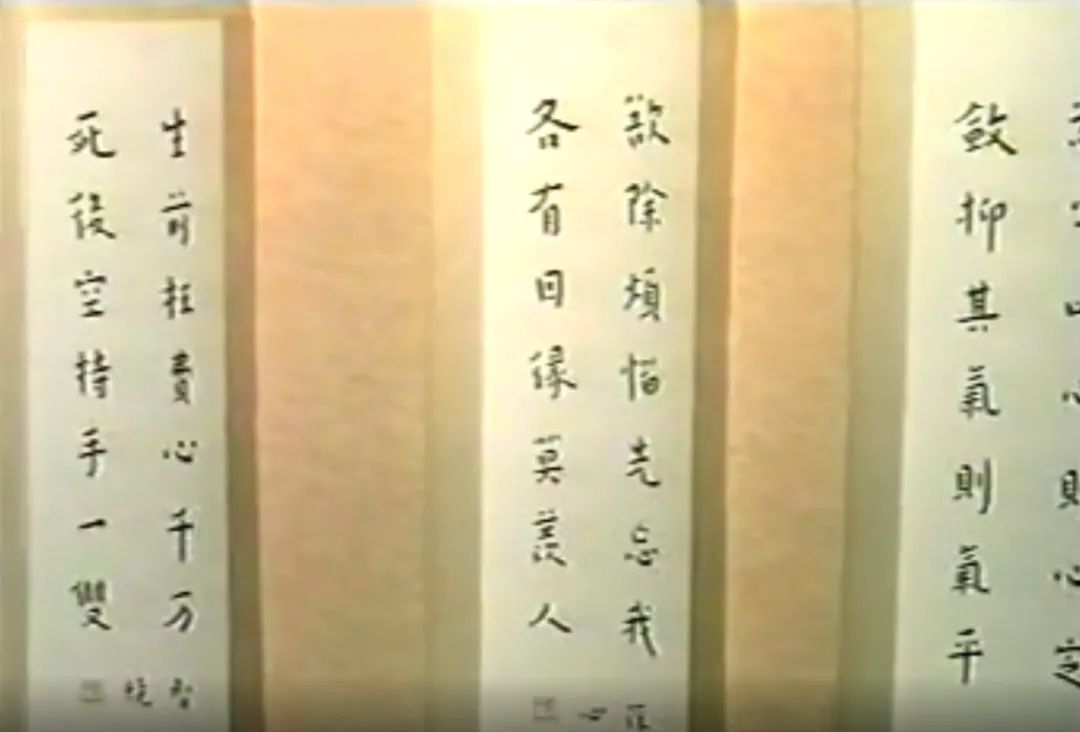 斂抑其氣則氣平
欲除煩惱先忘我
各有因緣莫羨人
生前枉費心千万
死後空持手一雙